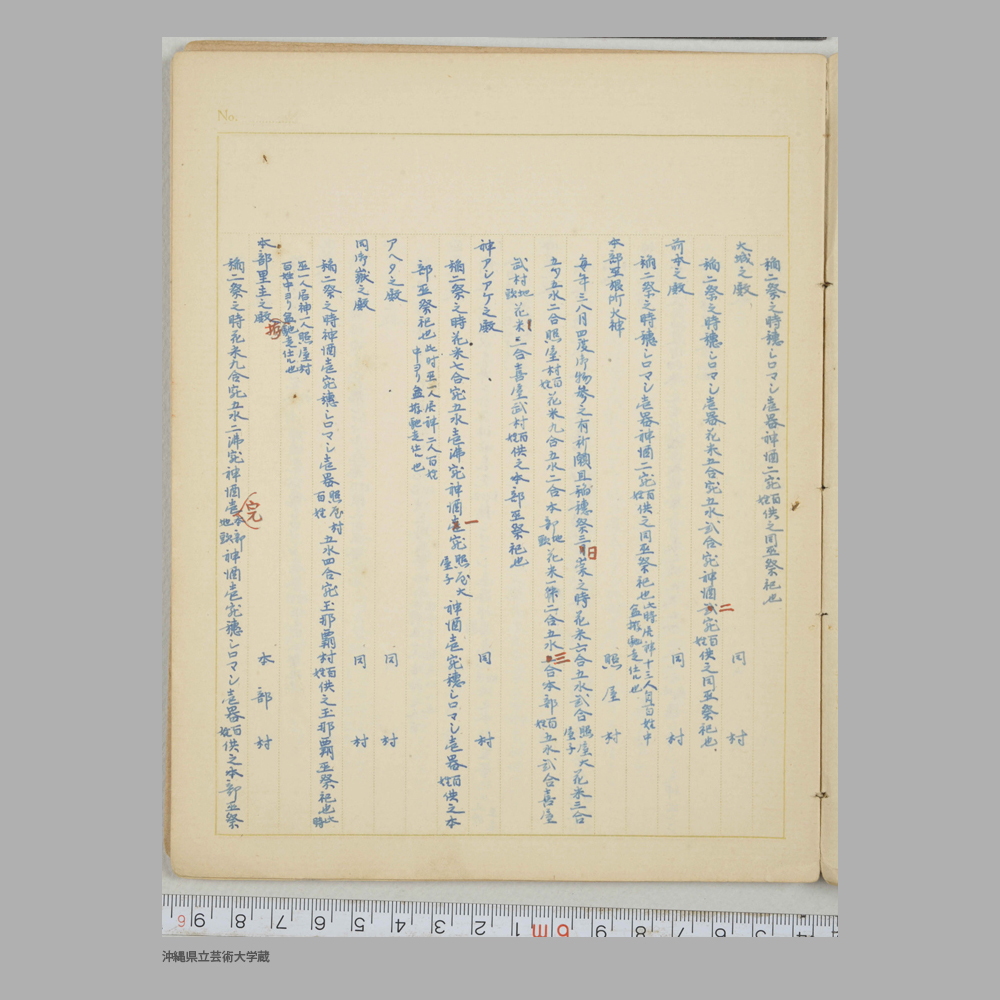 稲二祭之時穂シロマシ壱器神酒二宛百姓供之同巫祭祀也
大城之殿 同村
稲二祭之時穂シロマシ壱器花米五合宛五水弐合宛神酒弐宛百姓供之同巫祭祀也
二
前本之殿 同村
稲二祭之時穂シロマシ壱器神酒二宛百姓供之同巫祭祀也此時居神十三人自百姓中
盆推馳走仕ル也
本部巫根所火神 照屋村
毎年三八月四度御物参之有祈願且稲穂祭三日崇之時花米六合五水弐合照屋大屋子花米三合
日
五勺五水二合照屋村百姓花米九合五水二合本部地頭花米一舛二合五水二合本部百姓五水弐合喜屋
三
武村地頭花米二合喜屋武村百姓供之本部巫祭祀也
神アシアゲ之殿 同村
稲二祭之時花米七合宛五水壱沸宛神酒壱宛照屋大屋子神酒壱宛穂シロマシ壱器百姓供之本
一
部巫祭祀也此時巫一人居神二人百姓
中ヨリ盆推馳走仕ル也
アヘタ之殿 同村
同御嶽之殿 同村
稲二祭之時神酒壱宛穂シロマシ壱器照屋村百姓五水四合宛玉那覇村百姓供之玉那覇巫祭祀也此時
巫一人居神一人照屋村
百姓中ヨリ盆馳走仕ル也
本部里主之殿 本部村
稲二祭之時花米九合宛五水二沸宛神酒壱本部地頭神酒壱宛穂シロマシ壱器百姓供之本部巫祭
(宛)
No.
沖縄県立芸術大学蔵